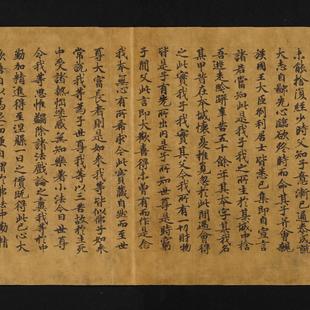 未能捨復經少時父知子意漸已通泰成就
大志自鄙先心臨欲終時而命其子并會親
族國王大臣剎利居士皆悉已集即自宣言
諸君當知此是我子我之所生於某城中捨
吾逃走伶俜辛苦五十餘年其本字某我名
某甲昔在本城懷憂推覓忽於此間遇會得
之此實我子我實其父今我所有一切財物
皆是子有先所出內是子所知世尊是時窮
子聞父此言即大歡喜得未曾有而作是念
我本無心有所希求今此寶藏自然而至世
尊大富長者則是如來我等皆似佛子如來
常說我等為子世尊我等以三苦故於生死
中受諸熱惱迷惑無知樂著小法今日世尊
令我等思惟蠲除諸法戲論之糞我等於中
勤加精進得至涅槃一日之價既得此已心大
歡喜自以為足而便自謂於佛法中勤精